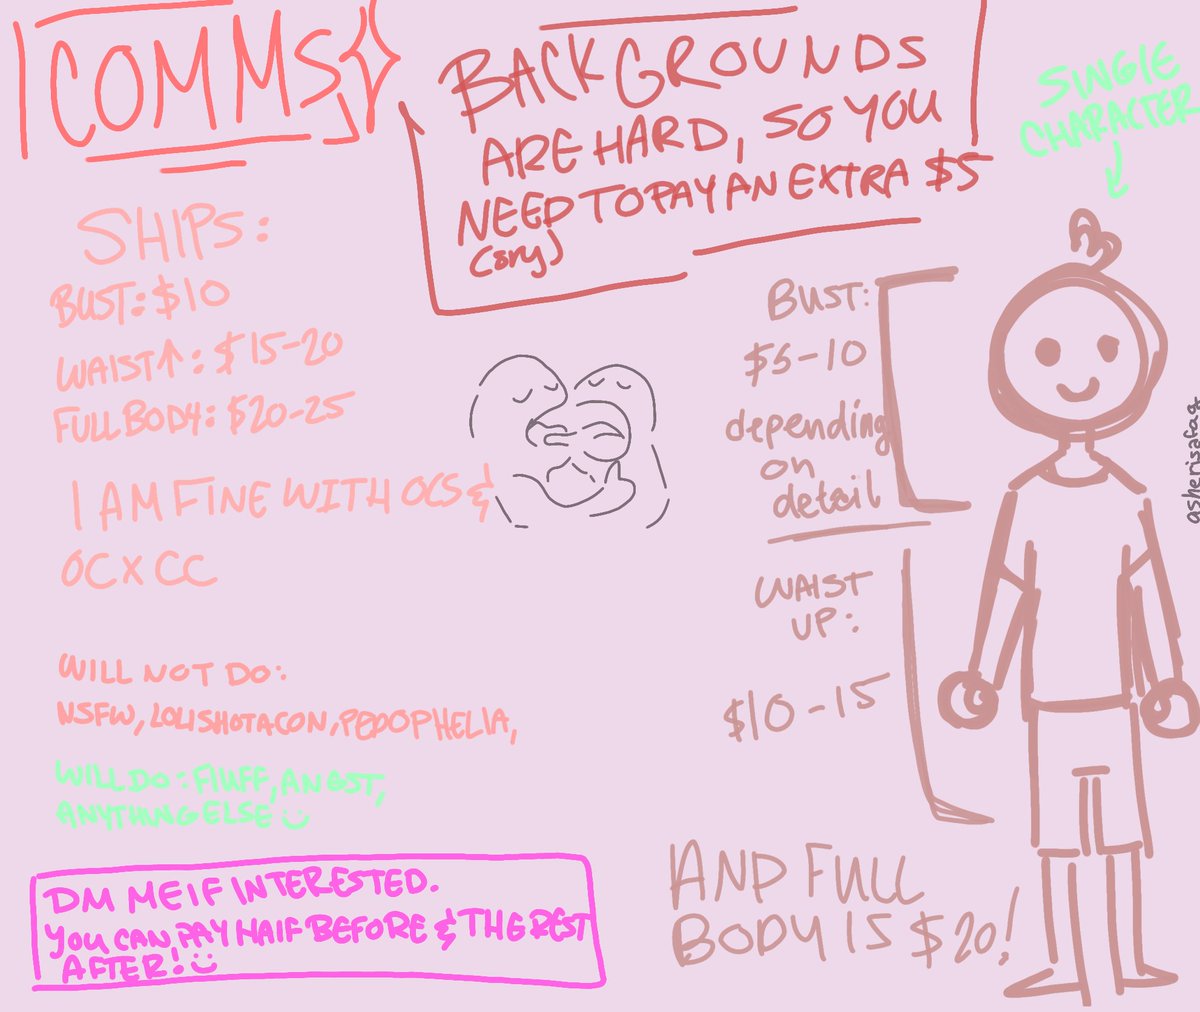 COMMS
BACKGROUNDS
ARE HARD, SO YOU
NEED TO PAY AN EXTRA $5
(sry)
SINGLE
CHARACTER
SHIPS:
BUST: $10
WAIST↑: $15-20
FULL BODY: $20-25
I AM FINE WITH OCS &
OC X CC
WILL NOT DO:
NSFW, LOLISHOTACON, PEDOPHELIA,
WILL DO: FlUFF, ANGST,
ANYTHING ELSE
DM ME IF INTERESTED.
YOU CAN PAY HAlF BEFORE & THE REST
AFTER!
BUST:
$5-10
depending
on
detail
WAIST
UP:
$10-15
AND FULL
BODY IS $20!
asherisafag